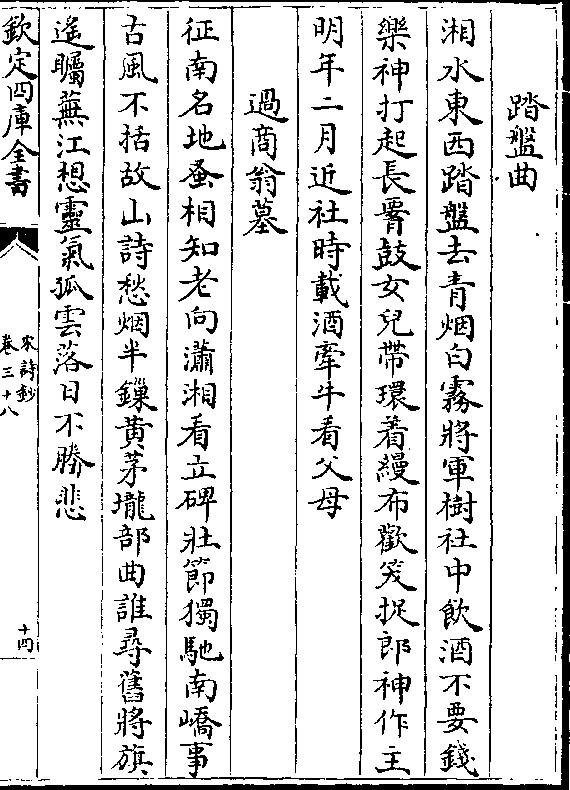 踏盤曲
湘水東西踏盤去青烟白霧將軍樹社中飲酒不要錢
樂神打起長𦝫鼓女兒帶環着縵布歡笑捉郎神作主
明年二月近社時載酒牽牛看父母
過商翁墓
征南名地蚤相知老向瀟湘看立碑壯節獨馳南嶠事
古風不括故山詩愁烟半鏁黄茅壠部曲誰尋舊將旗
遙矚蕪江想靈氣孤雲落日不勝悲
欽定四庫全書
宋詩鈔
卷三十八
十四